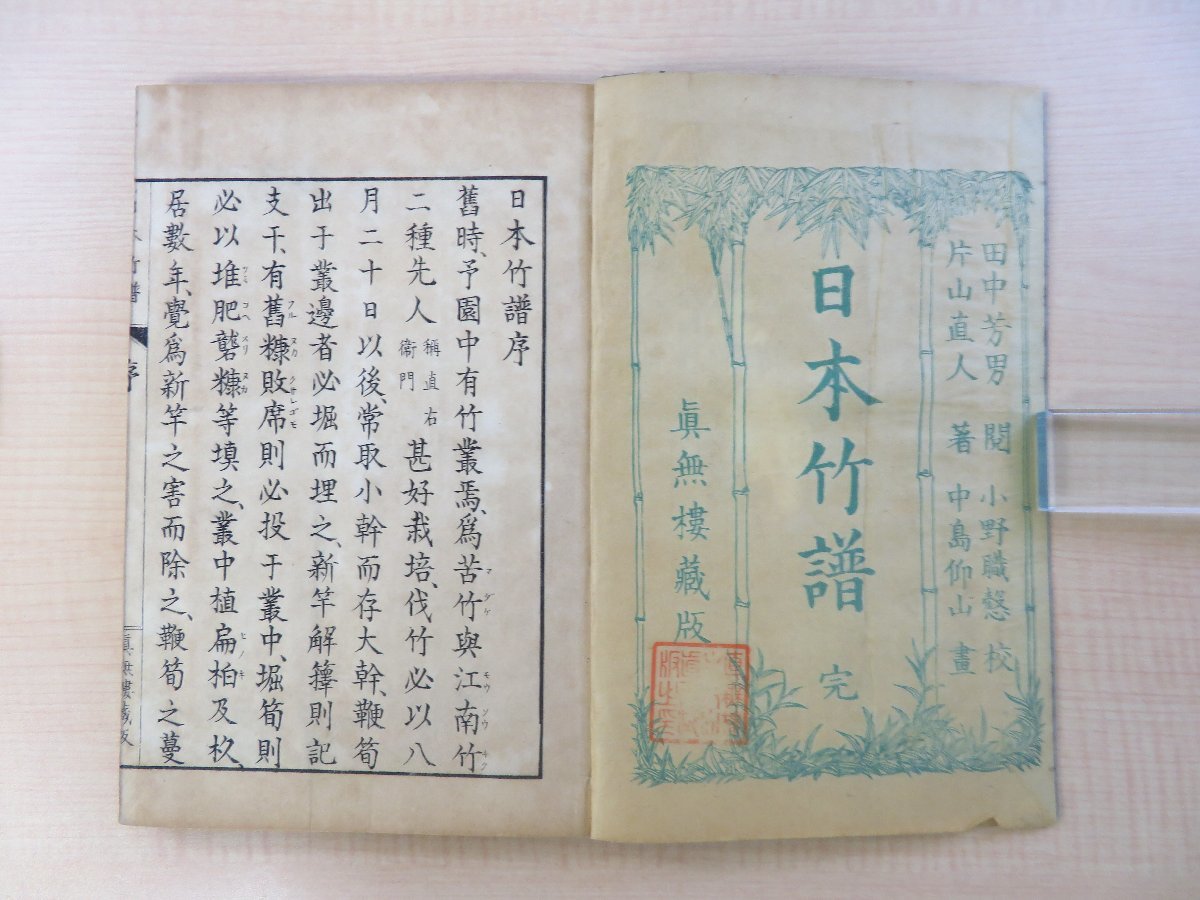 田中芳男 閲 小野職愨 校
片山直人 著 中島仰山 畫
日本竹譜 完
眞無樓藏版
日本竹譜序
舊時、予園中有竹叢焉、爲苦竹與江南竹
マダケ モウソウチク
二種先人稱直右衞門甚好栽培、伐竹必以八
月二十日以後、常取小幹而存大幹、鞭筍
出于叢邊者必堀而埋之、新竿解籜則記
支干、有舊糠敗席則必投于叢中、堀筍則
フルヌカ
必以堆肥礱糠等填之、叢中植扁柏及杦、
ツミコヘスリヌカ ヒノキ
居數年、覺爲新竿之害而除之、鞭筍之蔓
日本竹譜 序
眞無樓藏版